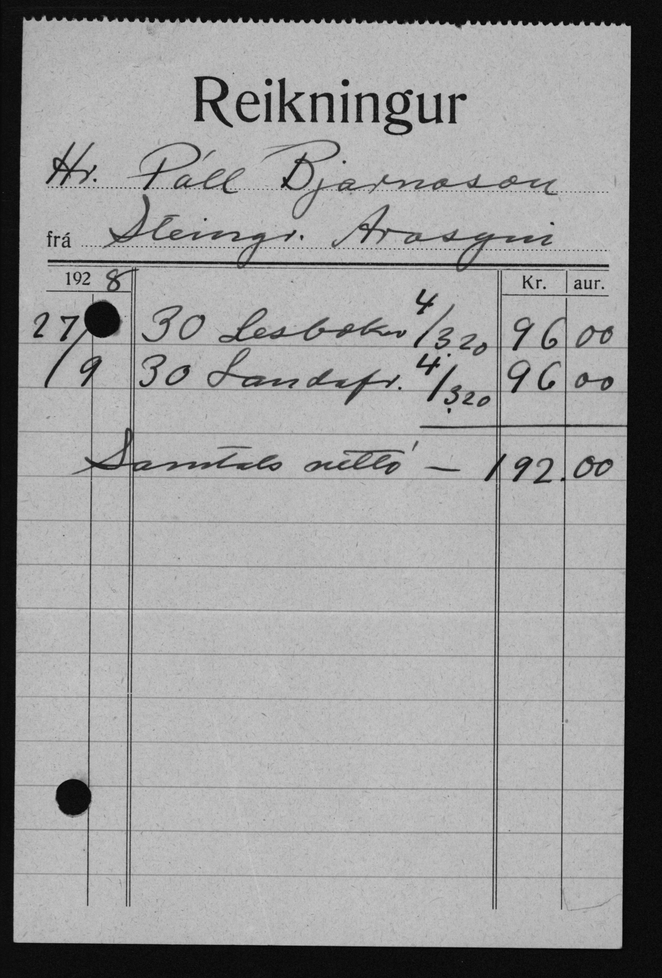 Reikningur
Hr. Páll Bjarnason
frá Steingr. Arasyni
1928 Kr. aur.
27/ 30 Lesbækur 4/3.20 96 00
/9 30 Landafr. 4/3.20 96 00
Samtals nettó — 192.00